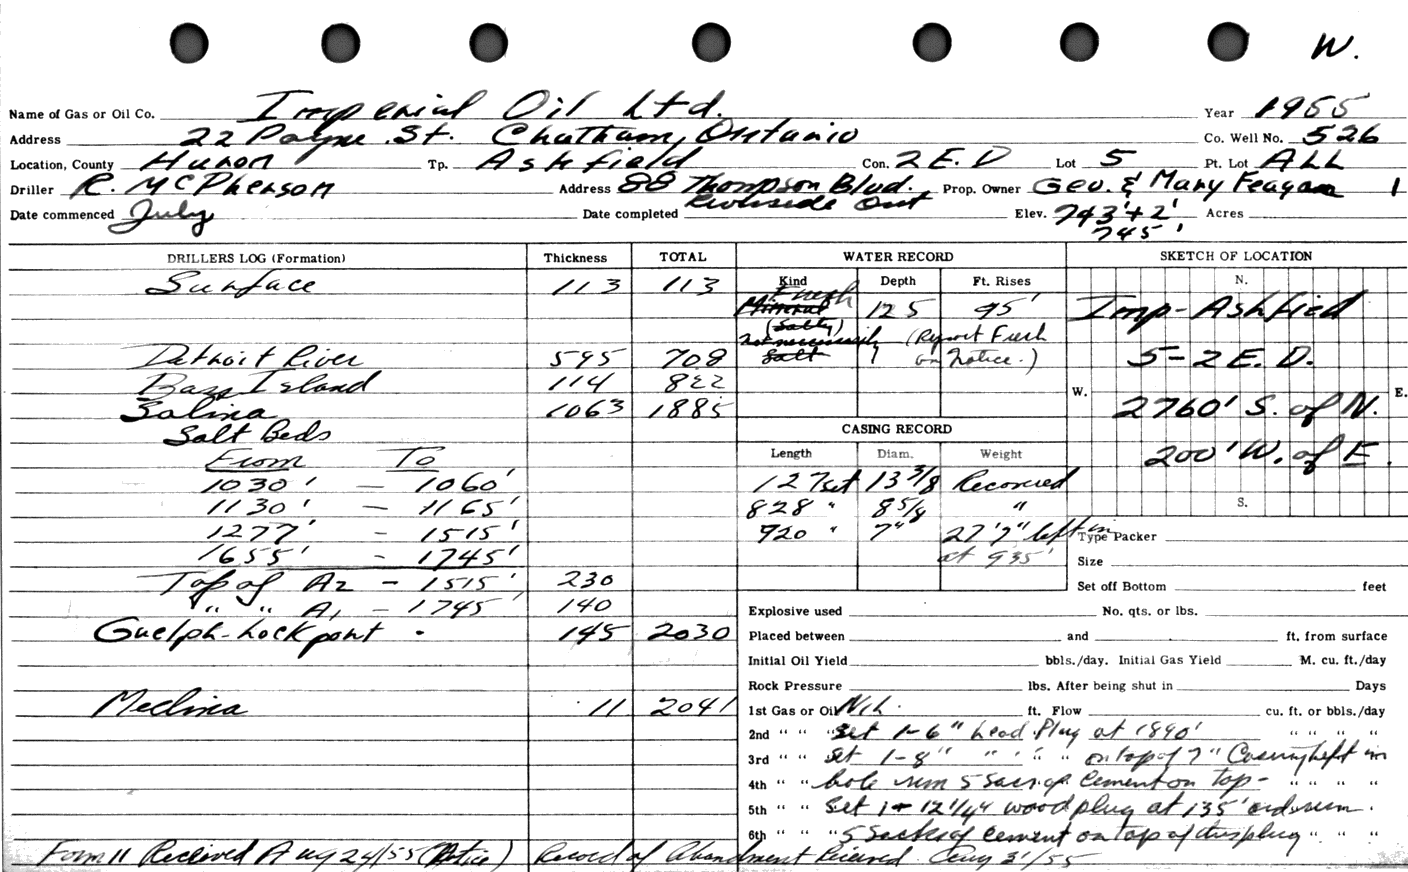 W.
Name of Gas or Oil Co. Imperial Oil Ltd. Year 1955
Address 22 Payne St. Chatham, Ontario Co. Well No. 526
Location, County Huron Tp. Ashfield Con. 2 E. D Lot 5 Pt. Lot ALL
Driller R. McPherson Address 88 Thompson Blvd. Riverside Ont Prop. Owner Geo. & Mary Feagan 1
Date commenced July Date completed Elev. 743'+2' Acres
745'
DRILLERS LOG (Formation) Thickness TOTAL WATER RECORD SKETCH OF LOCATION
Kind Depth Ft. Rises N.
Surface 113 113
Fresh
Mineral 125 95' Imp-Ashfield
(Salty)
not necessarily (Report Fresh
Detroit River 595 708 Salt on Notice.) 5-2 E. D.
Bass Island 114 822 W. E.
Salina 1063 1885 2760' S. of N.
Salt Beds CASING RECORD
From To Length Diam. Weight 200' W. of E.
1030' - 1060' 127 set 13 3/8 Recovered
1130' - 1165' 828 " 8 5/8 " S.
1277' - 1515' 920 " 7" 27'7" left in Type Packer
1655' - 1745' at 935' Size
Top of A2 - 1515' 230 Set off Bottom feet
" " A1 - 1745' 140 Explosive used No. qts. or lbs.
Guelph-Lockport - 145 2030 Placed between and ft. from surface
Initial Oil Yield bbls./day. Initial Gas Yield M. cu. ft./day
Rock Pressure lbs. After being shut in Days
Medina 11 2041 1st Gas or Oil Nil. ft. Flow cu. ft. or bbls./day
2nd " " " Set 1-6" Lead Plug at 1890' " " " "
3rd " " " Set 1-8" " " " on top of 7" Casing left in
4th " " " hole run 5 Sacs of Cement on top- " " " "
5th " " " Set 1- 12 1/4" wood plug at 135' and run "
6th " " " 5 Sacks of Cement on top of this plug " " "
Form 11 Received Aug 24/55 (Notice) Record of Abandment Received Aug 31/55